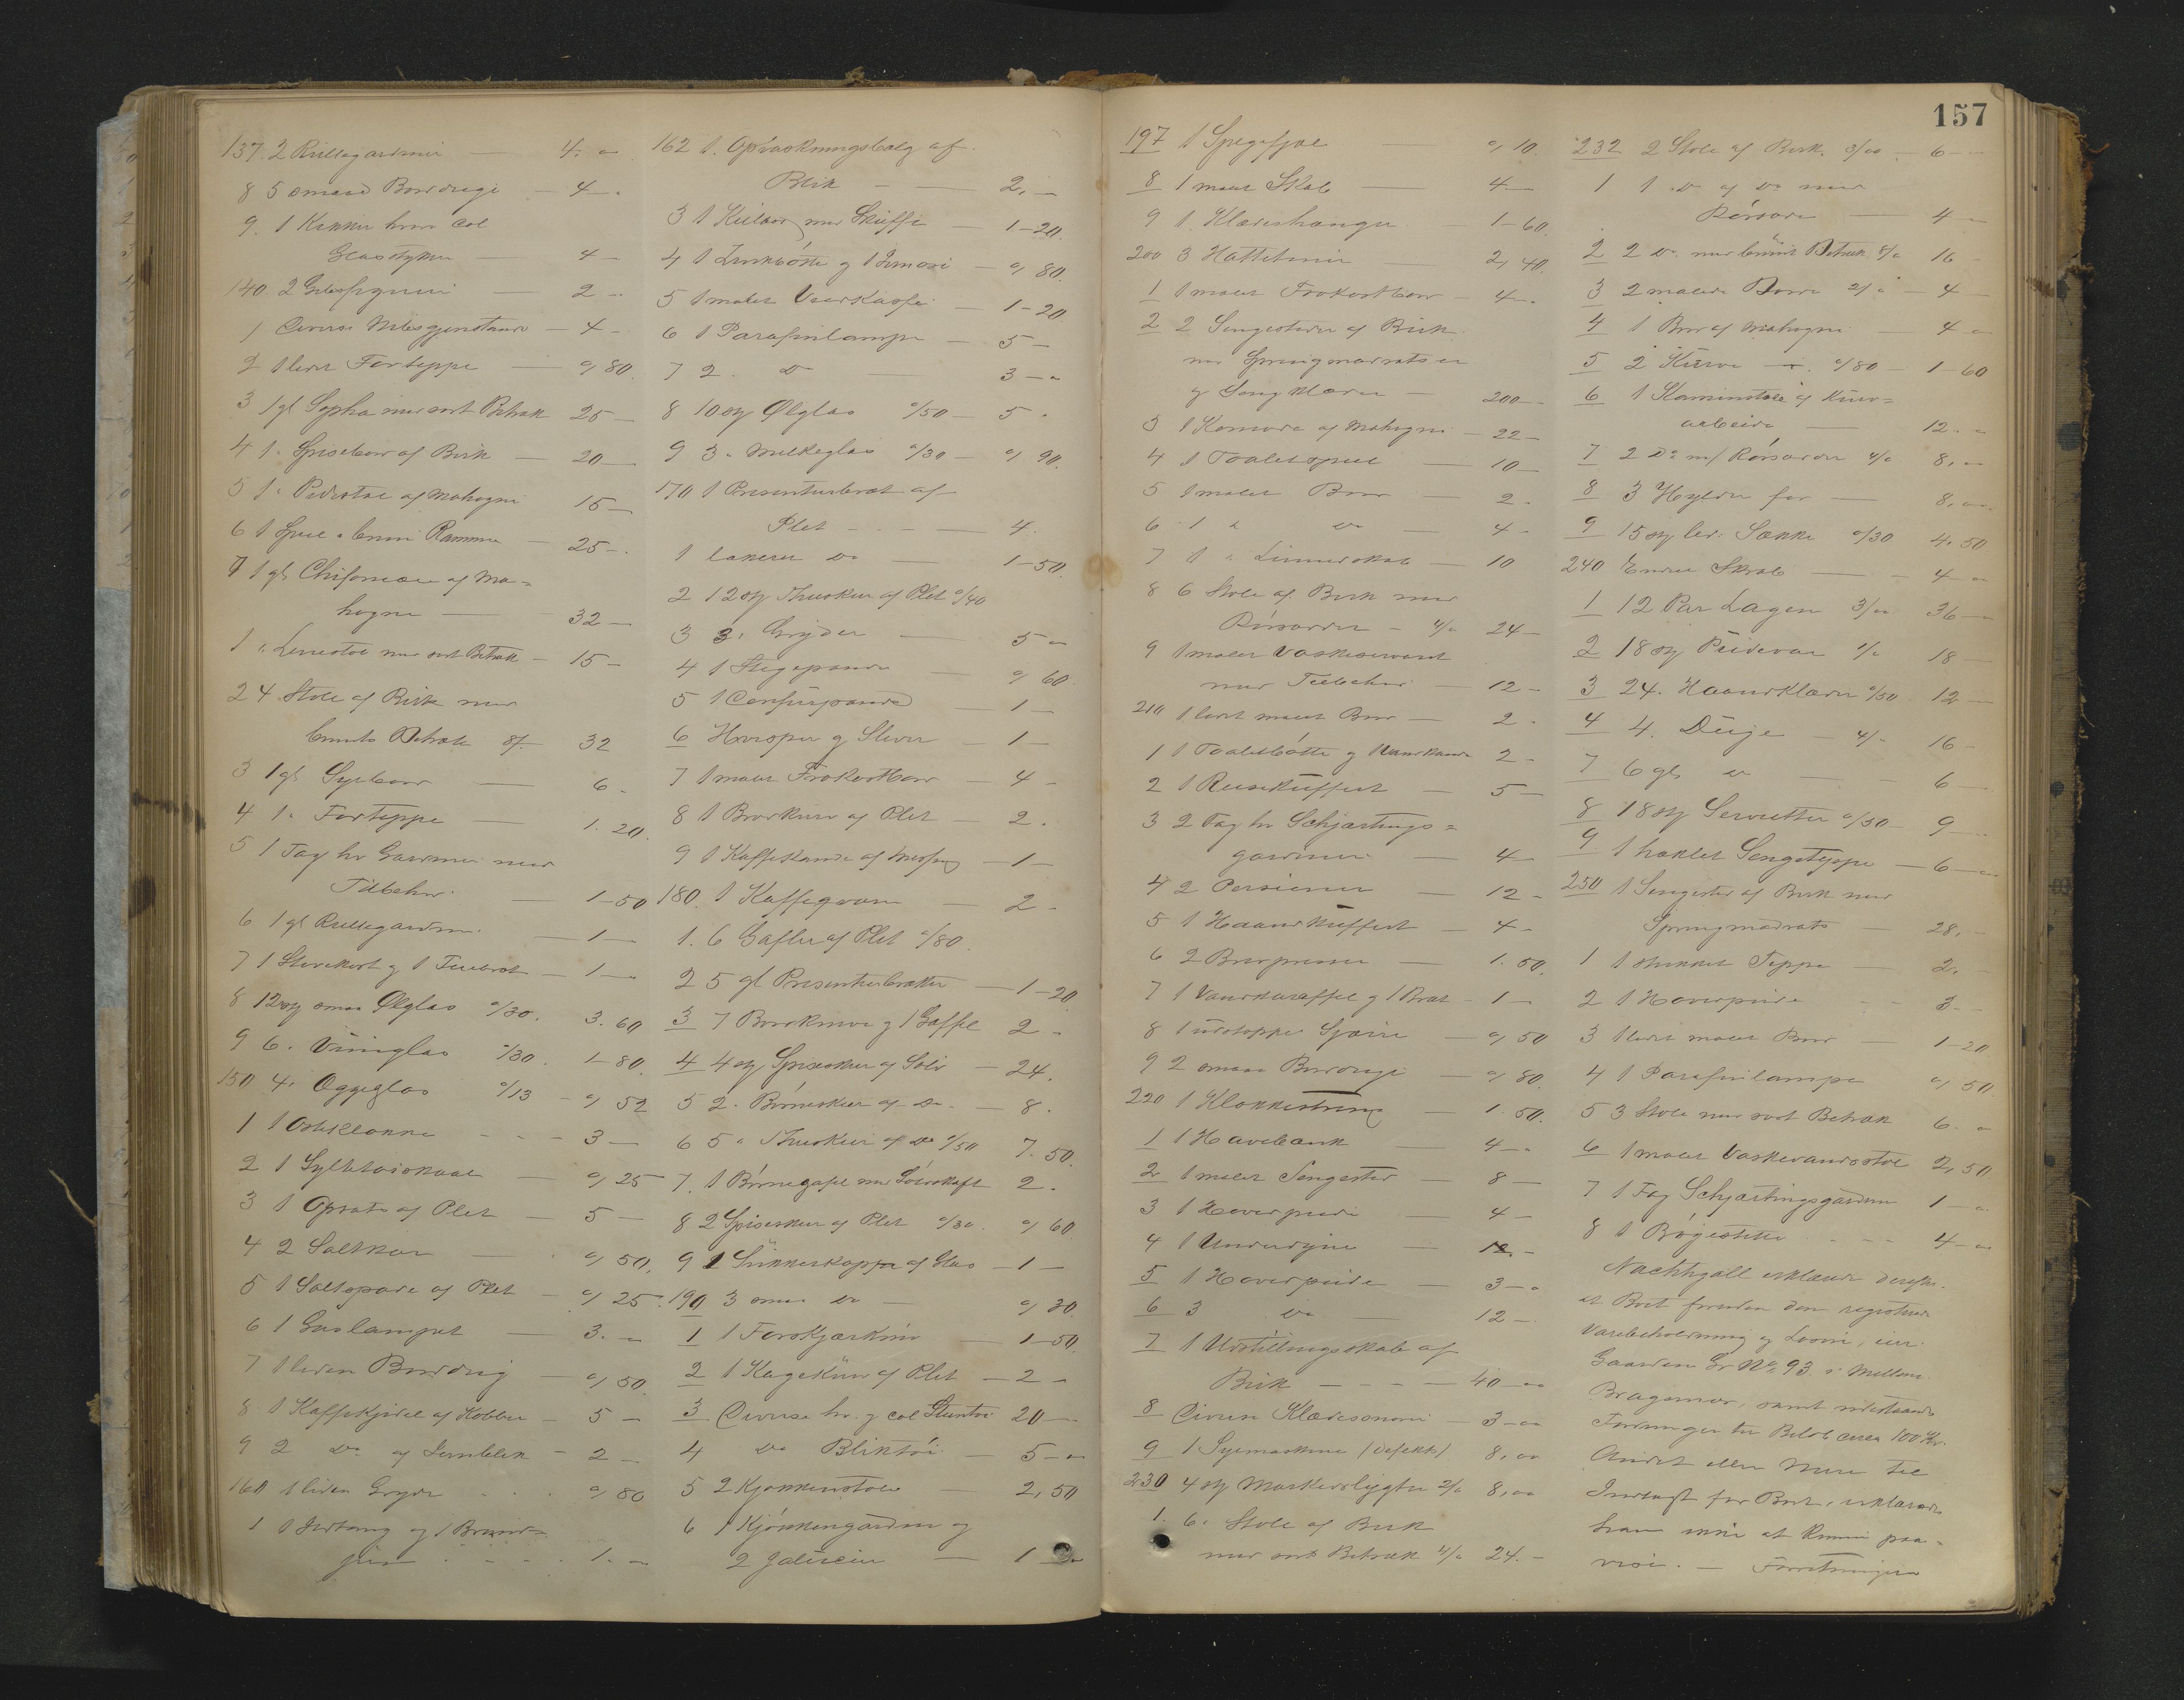 137. 2 Rullegardiner — 4. "
8 5 smaae Bordduge — 4 — "
9. 1 Kanne hvor col
Glasstykker — 4 —
140. 2 Gibsfigurer — 2 — "
1 Diverse Nipsgjenstande — 4 —
2 1 lidet Forteppe — " 80.
3 1 gl Sopha med sort Betræk 25 —
4 1. Spisebord af Birk — 20 —
5 1 " Pidestal af Mahogni 15 —
6 1 Speil i brun Ramme — 25 — .
7 1 gl. Chifoniere af Ma=
hogni — 32 —
1 " Lenestol med sort Betræk — 15 —
2 4 Stole af Birk med
brunt Betræk 8/. 32
3 1 gl Sybord — 6.
4 1 " Forteppe — 1. 20.
5 1 Fag hv Gardiner med
Tilbehør — 1 — 50
6 1 gl Rullegardin — 1 —
7 1 Stenkort og 1 — 1 — "
8 12 st smaa Ølglas "/30. 3. 60
9 6. Viinglas "/30. 1 — 80.
150 4. Æggeglas "/13 — " 52
1 1 Osteklokke - - - 3 —
2 1 Syltetøiskaal — " 25
3 1 Opsats af Plet — 5 —
4 2 Saltkar — " 50.
5 1 Saltspade af Plet — " 25.
6 1 Gaslampet — 3. "
7 1 liden Borddug — " 50.
8 1 Kaffekjedel af Kobber — 5 —
9 2 Do af Jernblik — 2 —
160 1 liden Gryde . . . " 80
1 1 Ildtang og 1 Brand=
jern . . . . . 1. "
162 1. Opvaskningsbalg af
Blik — 2. —
3 1 Kulbox med Skuffe — 1 — 20.
4 1 Zinkbøtte og 1 — " 80.
5 1 malet Vedkasse — 1 — 20
6 1 Parafinlampe — 5 —
7 2. Do — 3 — "
8 10 st Ølglas "/50 — 5 "
9 3 " Melkeglas "/30 — " 90.
170 1 Presenterbræt af
Plet - - — 4.
1 1 lakeret Do — 1 — 50.
2 12 st Theskeer af Plet "/40
3 3. Gryder — 5 "
4 1 Stegepande — " 60.
5 1 — 1 —
6 Hvisper og Slever — 1 —
7 1 malet Frokostbord — 4 —
8 1 Brødkurv af Plet — 2.
9 1 Kaffekande af Messing — 1 —
180. 1 Kaffekværn — 2 —
1. 6 Gafler af Plet "/80.
2 5 gl Presenterbretter — 1 — 20
3 7 Bordknive og 1 Gaffel 2 —
4 4 st Spiseskeer af Sølv — 24.
5 2. Børneskeer af Do. — 8.
6 5 " Theskeer af Do "/50 7. 50.
7. 1 Børnegafel med Sølvskaft 2.
8 2 Spiseskeer af Plet "/30. " 60
9 1 Sukkerskaal af Glas — 1 —
190 3 smaa Do — " 30.
1 1 Forskjærkniv — 1 — 50.
2 1 Kagekurv af Plet — 2 —
3 Diverse hv. og col Stentøi 20 —
4 Do Bliktøi — 5 — "
5 2 Kjøkkenstole — 2, 50
6 1 Kjøkkengardin og
2 — 1 — "
157
197 1 Spegefjæl — " 10.
8 1 malet Skab — 4 —
9 1 Klædeshænger — 1 — 60.
200 3 Hattetiner — 2, 40.
1 1 malet Frokostbord — 4 — .
2 2 Sengesteder af Birk
med Springmadratser
og Sengklæder — 200 —
3 1 Komode af Mahogni — 22 —
4 1 Toaletspeil — 10 —
5 1 malet Bord — 2.
6 1 " Do — 4 —
7 1 " Linnedskab — 10
8 6 Stole af Birk med
Rørsæder — 4/" 24 —
9 1 malet Vaskeservant
med Tilbehør — 12 —
210 1 lidet malet Bord — 2.
1 1 Toaletbøtte og 1 Vandkande 2 —
2 1 Reisekuffert — 5 —
3 2 Fag hv Schjærtings=
gardiner — 4 —
4 2 Persienner — 12 —
5 1 Haandkuffert — 4 —
6 2 Brevpresser — 1. 50.
7 1 Vandkaraffel og 1 Bræt — 1 —
8 1 udstoppet — " 50
9 2 smaa Borddug — " 80.
220 1 Klokkestreng — 1. 50.
1 1 Havebænk — 4 — "
2 1 malet Sengested — 8 —
3 1 Hovedpude — 4 —
4 1 Underdyne — 12. —
5 1 Hovedpude — 3 — "
6 3 Do — 12 —
7 1 Udstillingsskab af
Birk — - - - 40 — "
8 Diverse — 3 — "
9 1 Symaskine (defekt) 8, "
230 4 st Markedslygter 2/" 8, "
1. 6. Stole af Birk
med sort Betræk 4/" 24. —
232 2 Stole af Birk. 3/" — 6 —
1 1 Do af Do med
Rørsæde — 4 —
2 2 Do. med brunt Betræk 8/" 16 —
3 2 malede Borde 2/" — 4 —
4 1 Bord af Mahogni — 4 —
5 2 Kurve — "/80 — 1 — 60
6 1 Kaminstol af Kurv=
arbeide — 12. "
7 2 Do m/ Rørsæder 4/" 8, "
8 3 Hylder for — 8, "
9 15 st led: Sække "/30 4, 50
240 Endel Skrab — 4 "
1 12 Par Lagen 3/" 36 —
2 18 st Pudevar 1/" 18 —
3 24. Haandklæder "/50 12 —
4 4. Duge — 4/" 16 —
7 6 gl. Do — 6 —
8 18 st Servietter "/50 — 9 "
9 1 hæklet Sengeteppe — 6 — "
250 1 Sengested af Birk med
Springmadrats — 28, —
1 1 strikket Teppe — 2. —
2 1 Hovedpude — 3 —
3 1 lidet malet Bord — 1 — 20
4 1 Parafinlampe " 50
5 3 Stole med sort Betræk 6. "
6 1 malet Vaskevandsstol 2, 50
7 1 Fag Schjærtingsgardin 1 — "
8 1 . . . 4 — "
Nachtgall erklærede derefter
at Boet foruden den registrerede
Varebeholdning og Løsøre, eier
Gaarden Gr No 93 i Mellem
Bragernes, samt udestaaende
Fordringer til Beløb circa 100 Kr.
Andet eller Mere til
Indtægt for Boet, erklærede
han ikke at kunne paa-
vise. — Forretningen